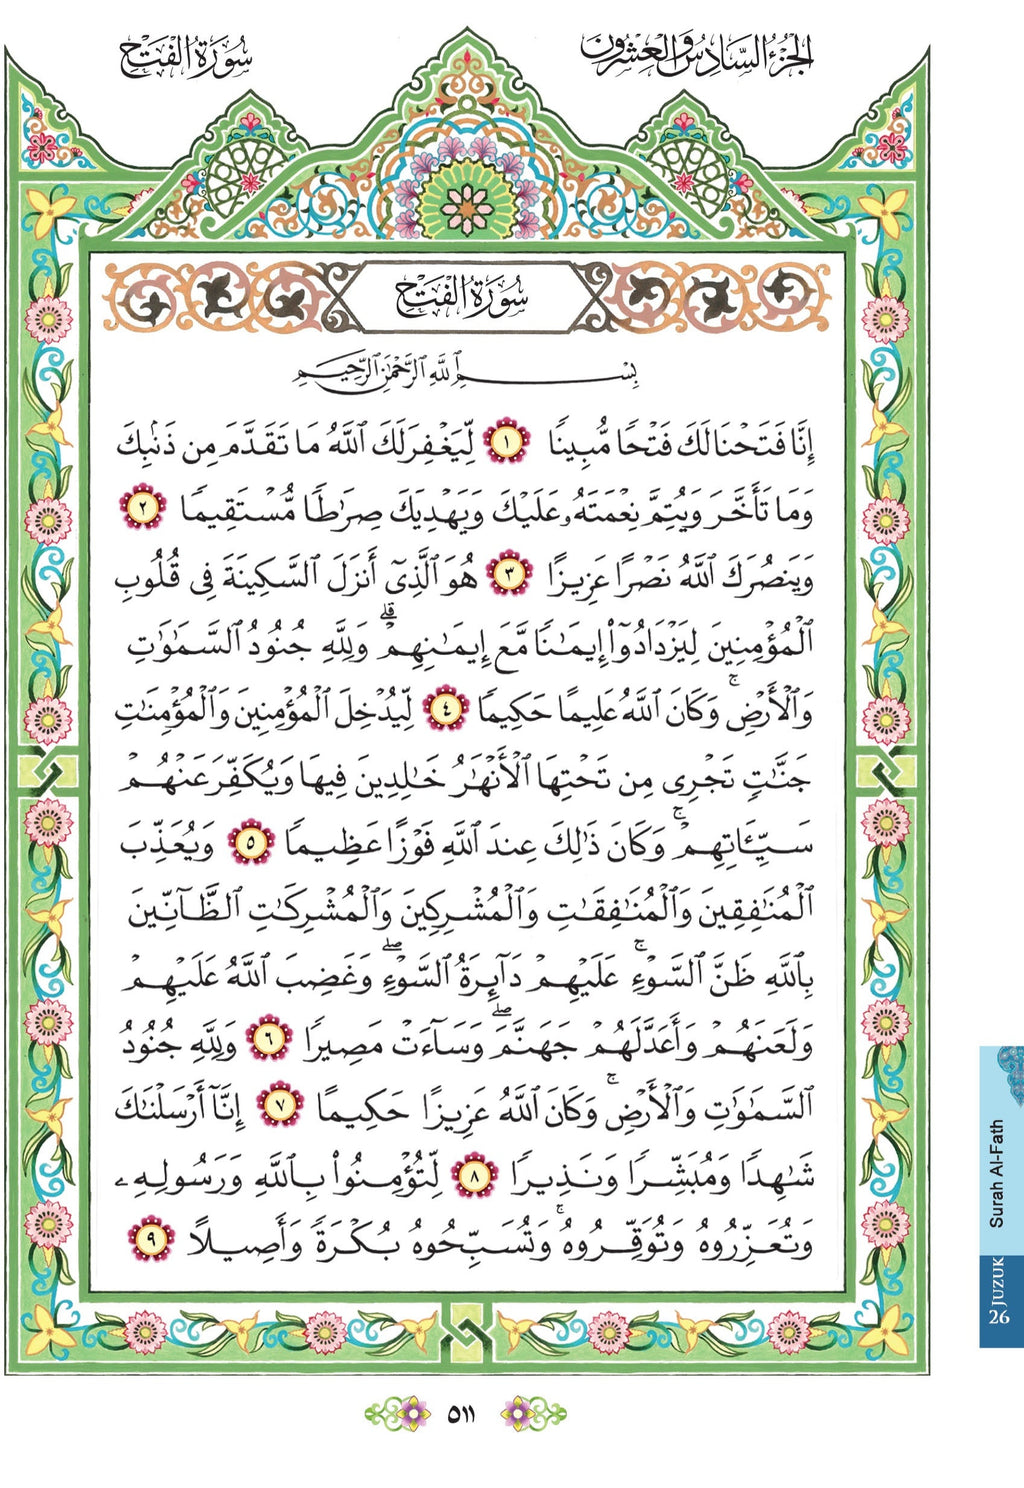 الجزء السادس والعشرون
سورة الفتح
سُورَةُ الْفَتْحِ
بِسْمِ ٱللَّهِ ٱلرَّحْمَٰنِ ٱلرَّحِيمِ
إِنَّا فَتَحْنَا لَكَ فَتْحًا مُّبِينًا ١ لِّيَغْفِرَ لَكَ ٱللَّهُ مَا تَقَدَّمَ مِن ذَنۢبِكَ
وَمَا تَأَخَّرَ وَيُتِمَّ نِعْمَتَهُۥ عَلَيْكَ وَيَهْدِيَكَ صِرَٰطًا مُّسْتَقِيمًا ٢
وَيَنصُرَكَ ٱللَّهُ نَصْرًا عَزِيزًا ٣ هُوَ ٱلَّذِىٓ أَنزَلَ ٱلسَّكِينَةَ فِى قُلُوبِ
ٱلْمُؤْمِنِينَ لِيَزْدَادُوٓا۟ إِيمَٰنًا مَّعَ إِيمَٰنِهِمْ ۗ وَلِلَّهِ جُنُودُ ٱلسَّمَٰوَٰتِ
وَٱلْأَرْضِ ۚ وَكَانَ ٱللَّهُ عَلِيمًا حَكِيمًا ٤ لِّيُدْخِلَ ٱلْمُؤْمِنِينَ وَٱلْمُؤْمِنَٰتِ
جَنَّٰتٍ تَجْرِى مِن تَحْتِهَا ٱلْأَنْهَٰرُ خَٰلِدِينَ فِيهَا وَيُكَفِّرَ عَنْهُمْ
سَيِّـَٔاتِهِمْ ۚ وَكَانَ ذَٰلِكَ عِندَ ٱللَّهِ فَوْزًا عَظِيمًا ٥ وَيُعَذِّبَ
ٱلْمُنَٰفِقِينَ وَٱلْمُنَٰفِقَٰتِ وَٱلْمُشْرِكِينَ وَٱلْمُشْرِكَٰتِ ٱلظَّآنِّينَ
بِٱللَّهِ ظَنَّ ٱلسَّوْءِ ۚ عَلَيْهِمْ دَآئِرَةُ ٱلسَّوْءِ ۖ وَغَضِبَ ٱللَّهُ عَلَيْهِمْ
وَلَعَنَهُمْ وَأَعَدَّ لَهُمْ جَهَنَّمَ ۖ وَسَآءَتْ مَصِيرًا ٦ وَلِلَّهِ جُنُودُ
ٱلسَّمَٰوَٰتِ وَٱلْأَرْضِ ۚ وَكَانَ ٱللَّهُ عَزِيزًا حَكِيمًا ٧ إِنَّآ أَرْسَلْنَٰكَ
شَٰهِدًا وَمُبَشِّرًا وَنَذِيرًا ٨ لِّتُؤْمِنُوا۟ بِٱللَّهِ وَرَسُولِهِۦ
وَتُعَزِّرُوهُ وَتُوَقِّرُوهُ ۚ وَتُسَبِّحُوهُ بُكْرَةً وَأَصِيلًا ٩
Surah Al-Fath
JUZUK 26
٥١١